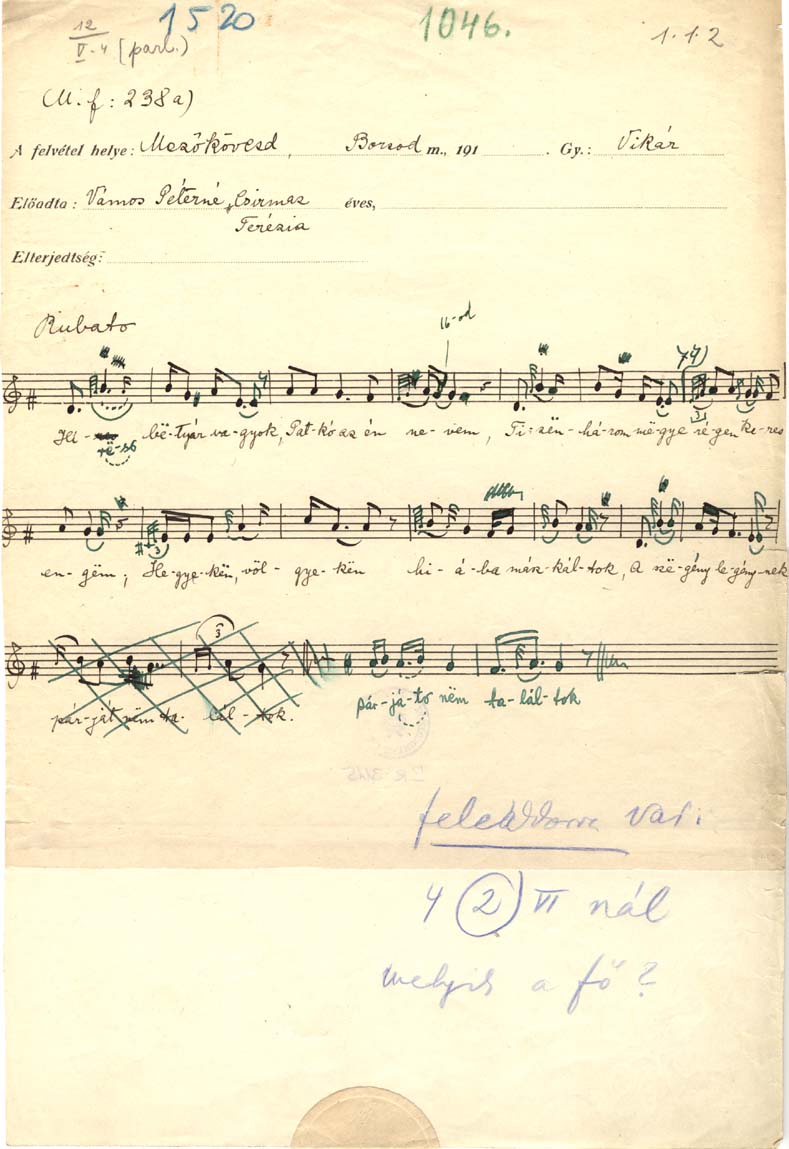 12 1520 1046. 1.1.2
V-4 (parl.)
(M. f: 238a)
A felvétel helye: Mezőkövesd, Borsod m., 191 . Gy.: Vikár
Előadta: Vámos Péterné, Csirmaz éves,
Terézia
Elterjedtség:
16-od
Rubato
Hí-rë-ss bë-tyár va-gyok, Pat-kó az én ne-vem, Ti-zën-há-rom mëgye régen keres
3
en-gëm; He-gye-kën, völ-gye-kën hi-á-ba mász-kál-tok, A szë-gény le-gény-nek
3
pár-ját nëm ta-lál-tok.
pár-já-to nëm ta-lál-tok
vari
4 2 VI nál
melyik a fő?